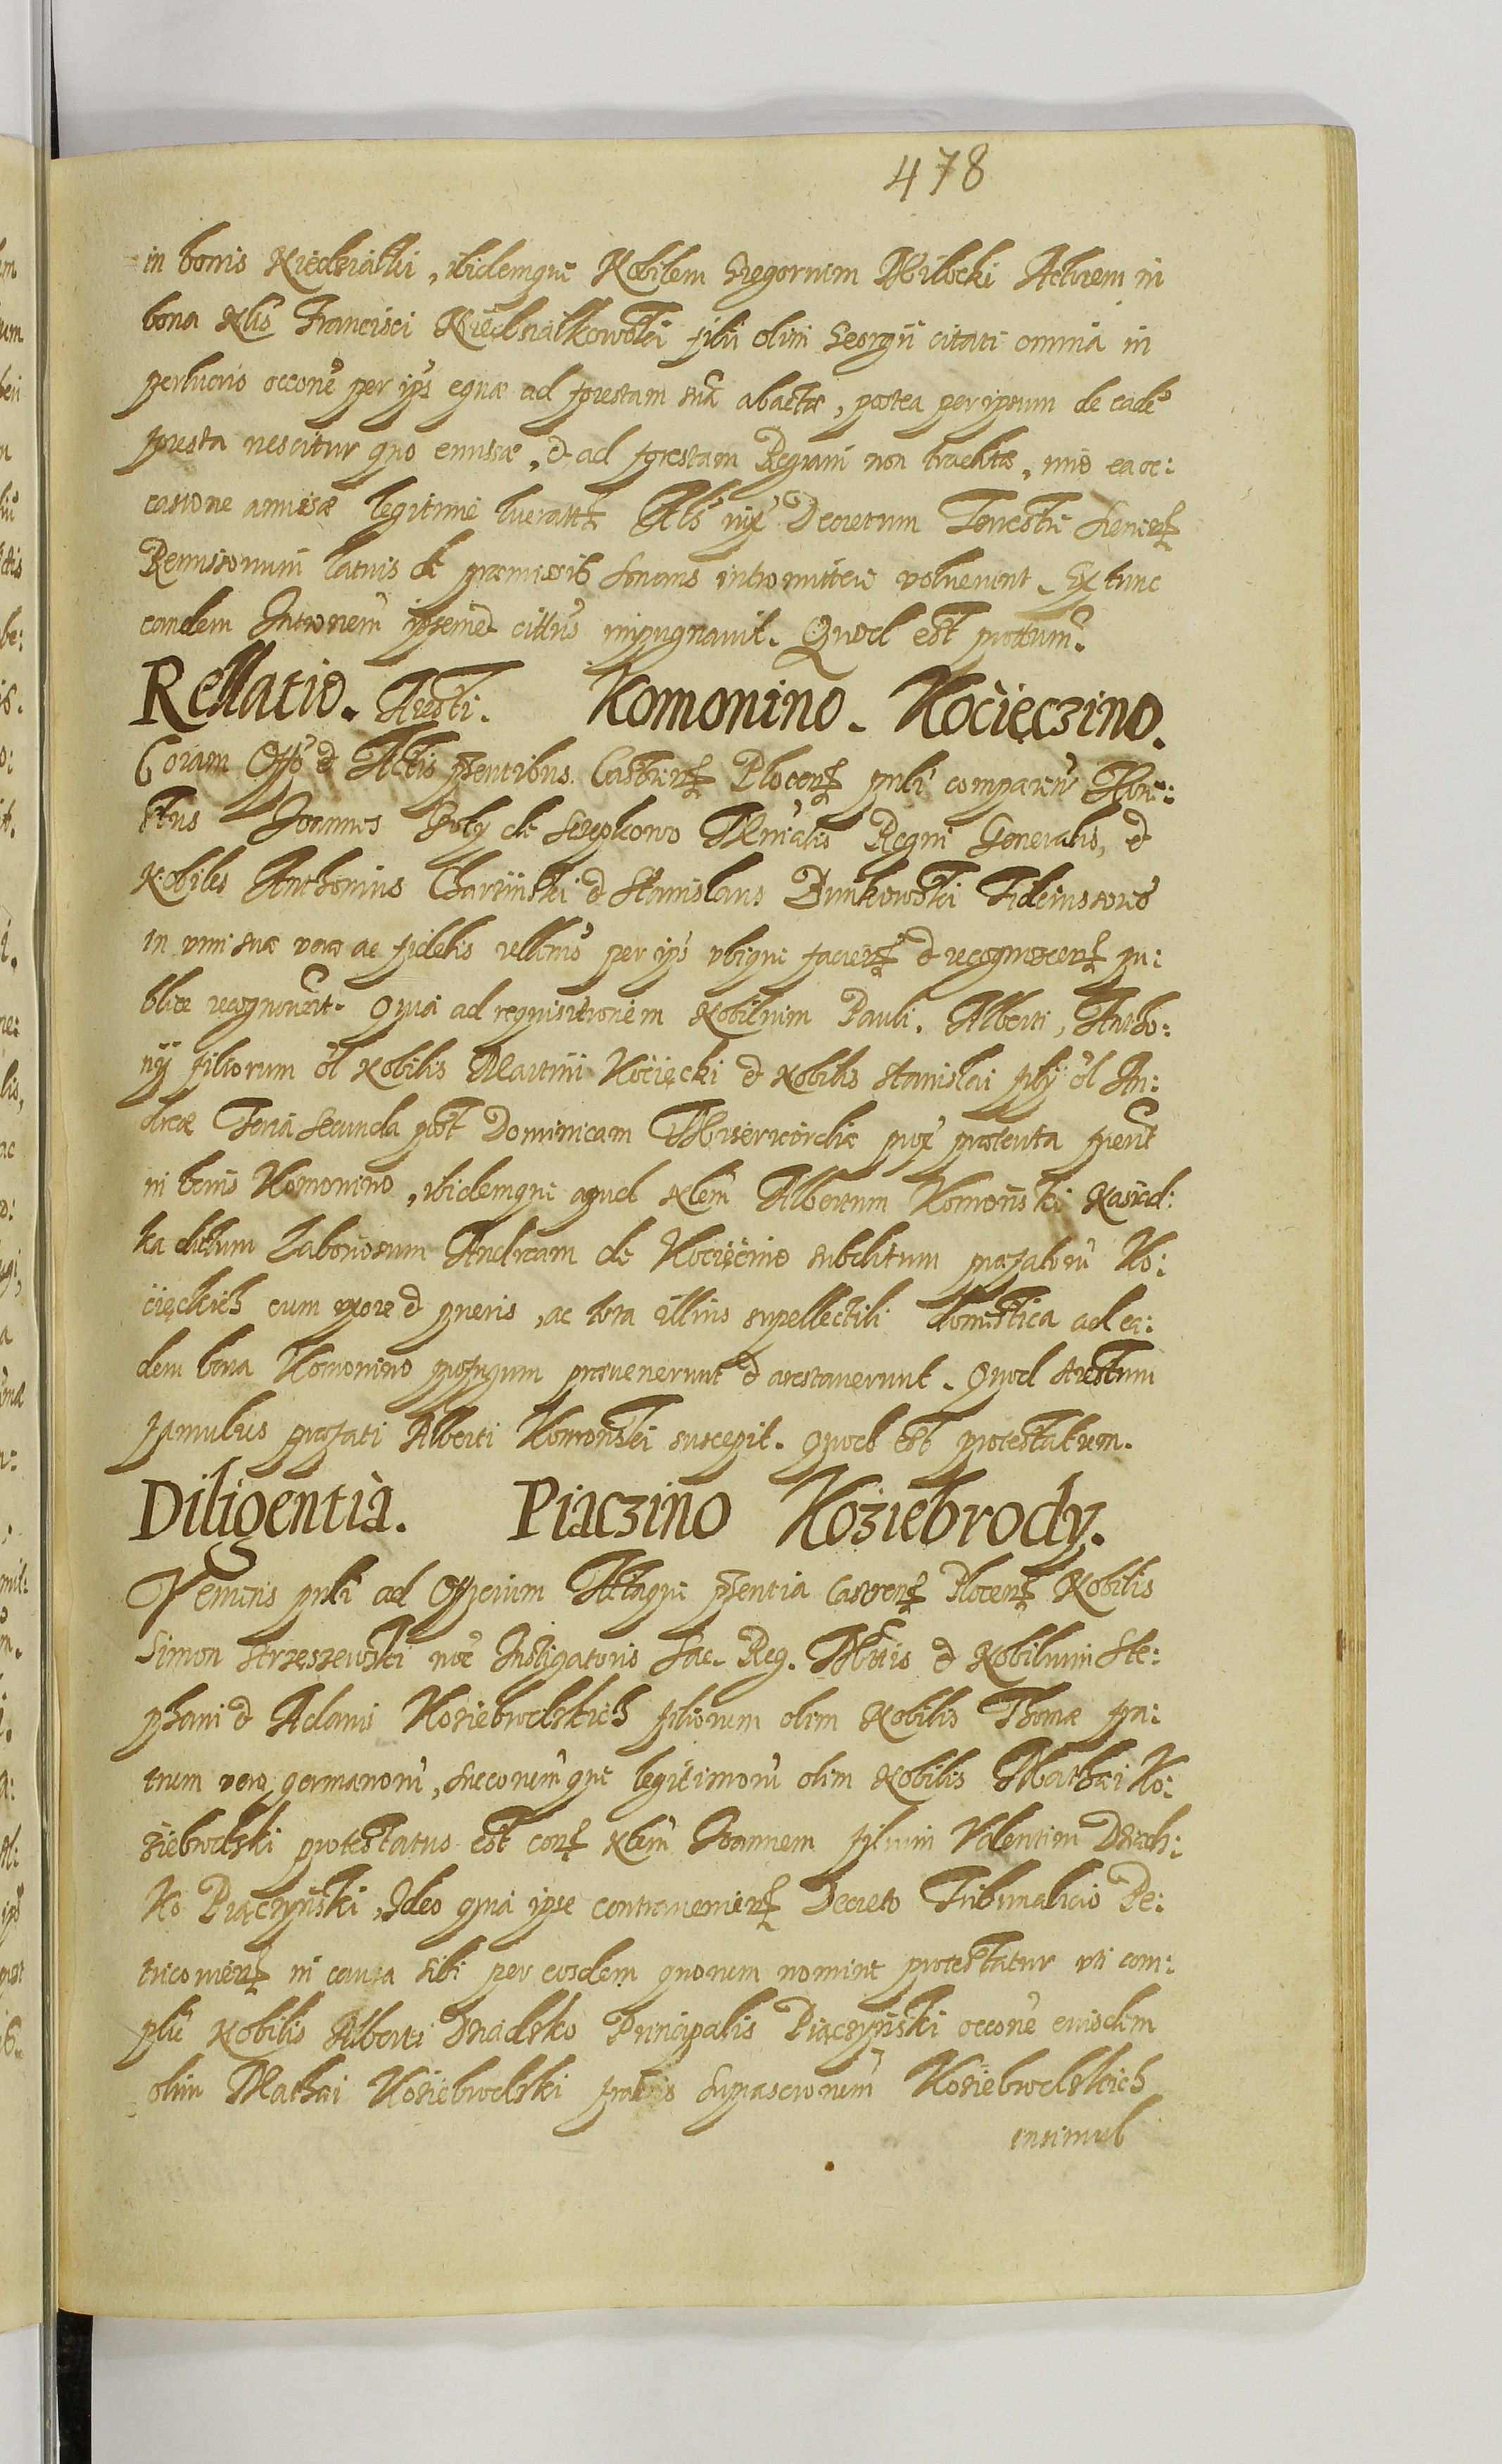 478
in bonis Niedzialki, ibidemque Nobilem Gregorium Milocki Actorem in
bona Nlis Francisci Niedzialkowski filii olim Georgii citati omnia in
perlucrio occone per ips equæ ad forestam suã abactæ, postea per ipsum de eade
foresta nescitur quo emissæ, & ad forestam Regiam non tractæ, imo ea oc:
casione amissæ legitime Als iux Decretum Terrestre
Remissorium latius de præmissis sonans intromittere voluerunt. Ex tunc
eandem Intronem ipsemet cittus impugnavit. Quod est prottum.
Rellatio. Aresti. Komonino. Kocięczino.
Coram Offo & Actis psentibus Castren Plocen psli comparen Hone:
stus Joannes Goły de Serepkowo Mnialis Regni Generalis, &
Nobiles Anthonius Charzinski & Stanislaus Bunkowski Fideiussores
in vim suæ veræ ac fidelis rellnis per ips ubique facien & recognoscen pu:
blice recognoverit. Quia ad requisitionem Nobilium Pauli, Alberti, Antho:
nij filiorum ol Nobilis Martini Kocięcki & Nobilis Stanislai filij ol An:
dreæ Feria Secunda post Dominicam Misericordiæ prox præterita fuerit
in bonis Komonino, ibidemque apud Nlem Albertum Komonski Kasiad:
ka dictum Laboriosum Andream de Kocięcino subditum præfatoru Ko:
cięckich cum uxore & pueris, ac tota illius supellectili domestica ad ea:
dem bona Komonino profugum prævenerunt & arestaverunt. Quod Arestum
famulus præfati Alberti Komonski suscepit. Quod est protestatum.
Diligentia. Piaczino Koziebrody.
Veniens psli ad Officium Actaque psentia Castren Plocen Nobilis
Simon Strzeszewski noe Instigatoris Sac. Reg. Mttis & Nobilium Ste:
phani & Adami Koziebrodskich filiorum olim Nobilis Thomæ fra:
trum vero germanoru, Succorumque legitimoru olim Nobilis Mathæi Ko:
ziebrodski protestatus est con Nlem Joannem filium Valentini Dziadz:
ko Piączyński, Ideo quia ipse contravenien Decreto Tribunalicio Pe:
tricovien in causa sibi per eosdem quorum nomine protestatur uti com:
plici Nobilis Alberti Dziadzko Principalis Piączyński occone eiusdem
olim Mathæi Koziebrodski fratris suprascriptorum Koziebrodskich
insimul